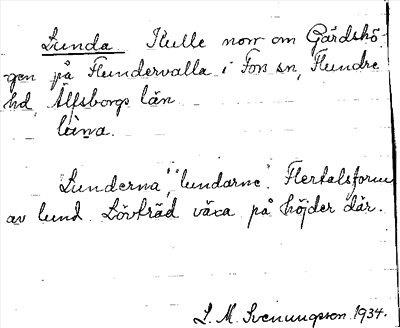 Lunda Kulle norr om Gärdshö-
gen på Flundervalla i Fors sn, Flundre
hd, Älfsborgs län.
läna.
Lunderna, "lundarne". Flertalsform
av lund. Lövträd växa på höjder där.
L. M. Svenungsson 1934.